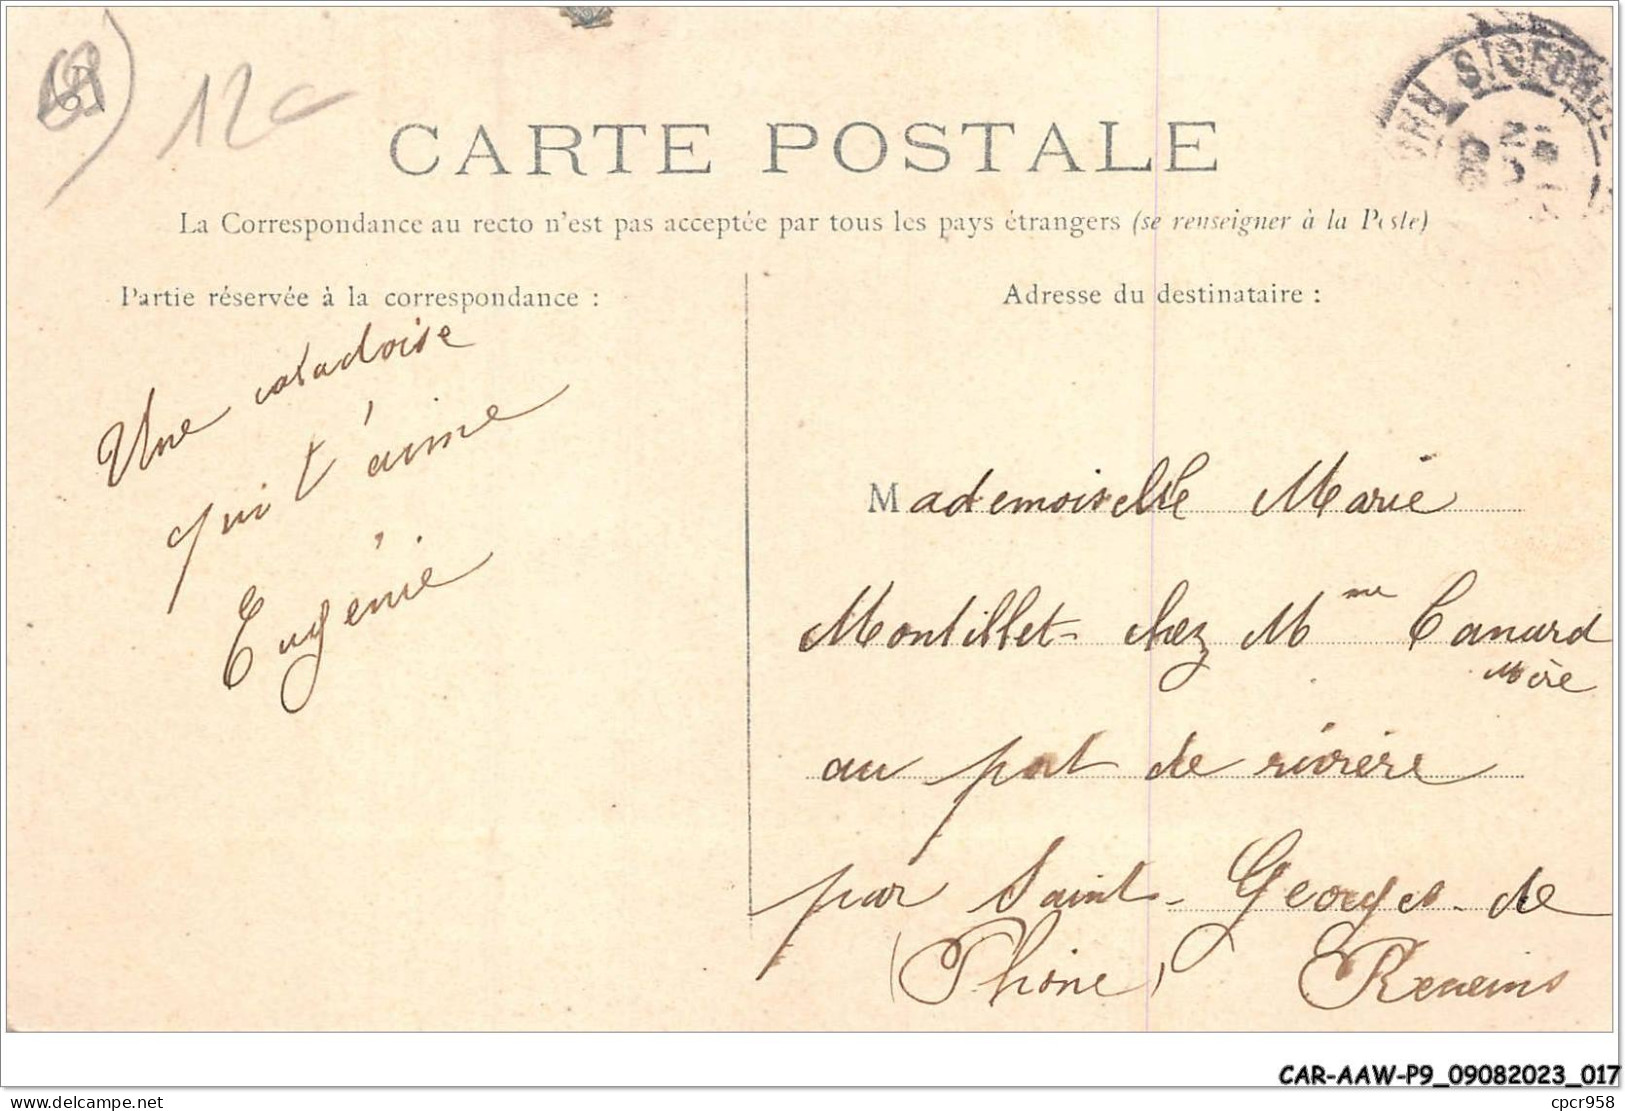 69)
12c
CARTE POSTALE
La Correspondance au recto n'est pas acceptée par tous les pays étrangers (se renseigner à la Poste)
Partie réservée à la correspondance :
Une caladoise
qui t'aime
Eugénie
Adresse du destinataire :
Mademoiselle Marie
Montillet - chez Mme Canard
Mère
au port de rivière
par Saint-Georges-de
(Rhône) Reneins
CAR-AAW-P9_09082023_017
cpcr958